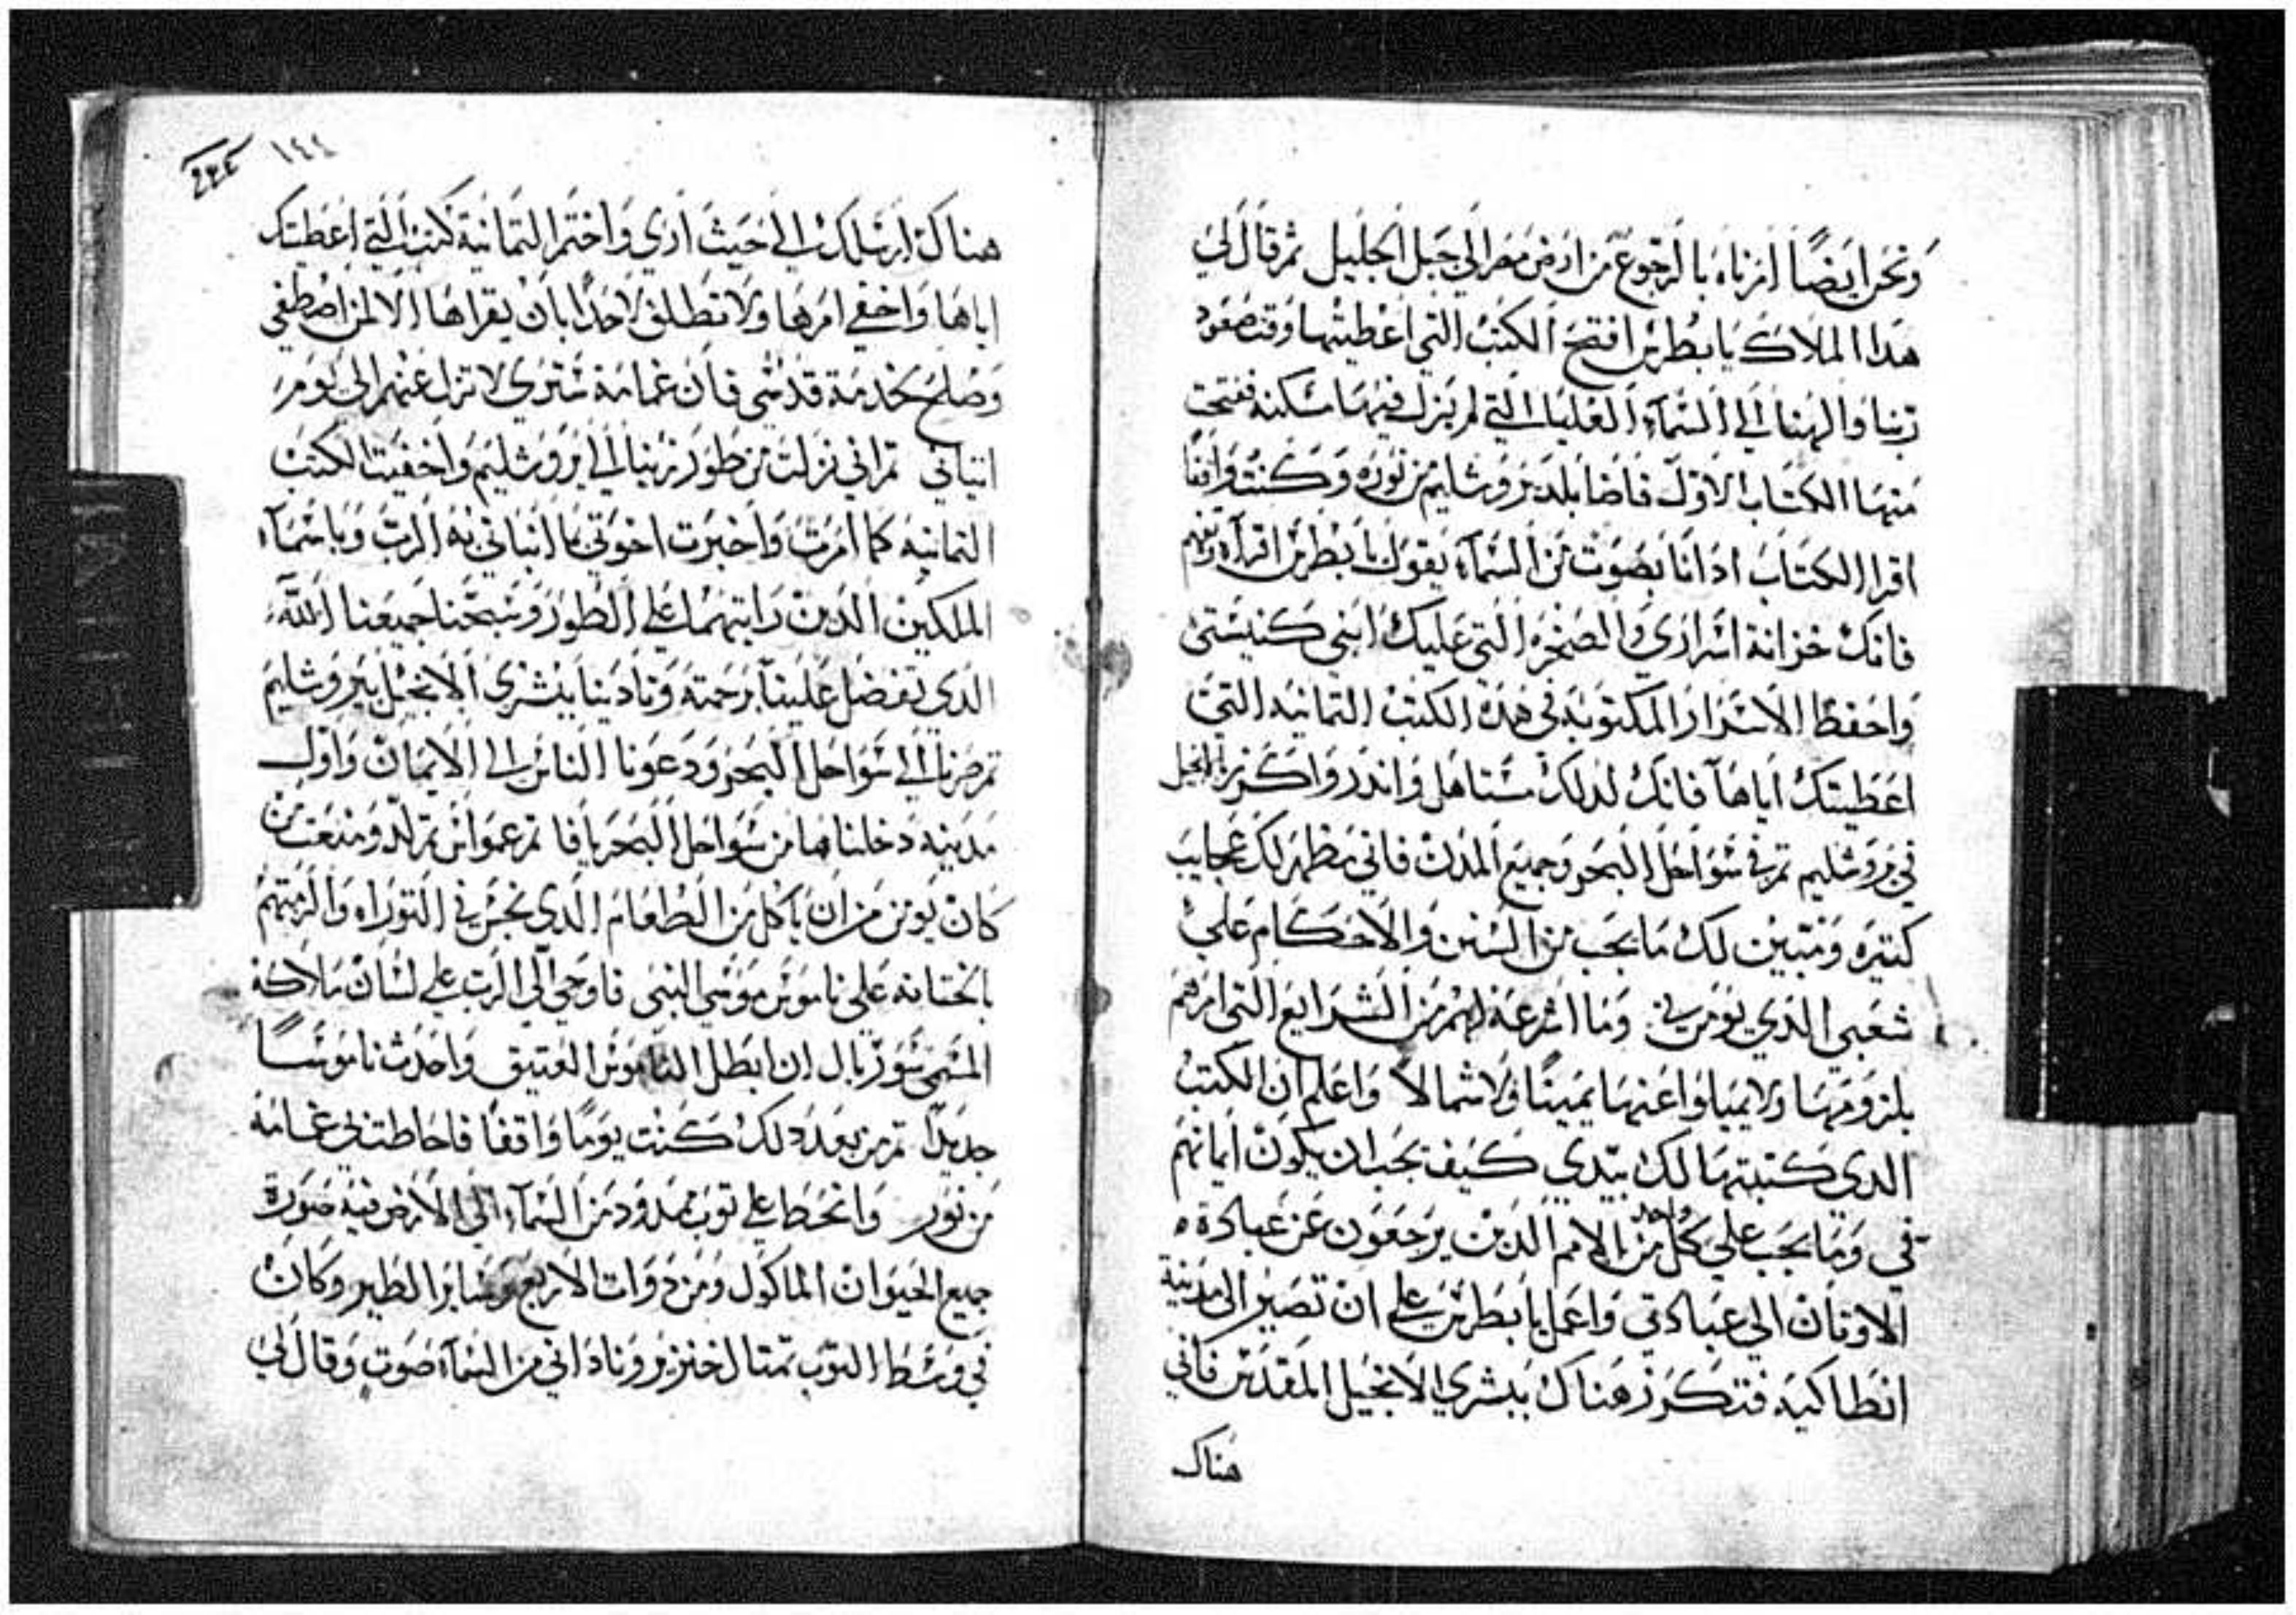 ونحن ايضا امرناه بالرجوع من ارض مصر الي جبل الجليل ثم قال لي
هدا الملاك يا بطرس افتح الكتب التي اعطيتها وقت صعود
ربنا والهنا الي السماء العليا التي لم يزل فيها مسكنه ففتحت
منها الكتاب الاول فاضا بلد يروشليم من نوره وكنت واقفا
اقرا الكتاب ادا انا بصوت من السماء يقول يا بطرس اقراه وتفهم
فانك خزانة اسراري والصخره التي عليك ابني كنيستي
واحفظ الاسرار المكتوبه في هده الكتب التمانيه التي
اعطيتك اياها فانك لدلك مستاهل واندر واكرز بالانجيل
في يروشليم تم في سواحل البحر وجميع المدن فاني مظهر لك عجايب
كتيره ومتبين لك ما يجب من السنن والاحكام علي
شعبي الدي يومن بي وما اشرعة لهم من الشرايع التي امرهم
بلزومها ولا يميلوا عنها يمينا ولا شمالا واعلم ان الكتب
الدي كتبتها لك تبتدي كيف يجب ان يكون ايمانهم
في وما يجب علي كل واحد من الامم الدين يرجعون عن عبادة
الاوتان الي عبادتي واعمل يا بطرس علي ان تصير الي مدينة
انطاكيه فتكرز هناك ببشري الانجيل المقدس فاني
هناك
١٤٤
هناك ارسلك الي حيث اري واختم التمانية كتب التي اعطيتك
اياها واخفي امرها ولا تطلق لاحدا بان يقراها الا لمن اصطفي
وصلح لخدمة قدسي فان غمامة ستري لا تزل عنهم الي يوم
اتياني تم اني نزلت من طور زيتا الي ايروشليم واخفيت الكتب
التمانيه كما امرت واخبرت اخوتي ما انباني به الرب وباسماء
الملكين الدين رايتهما علي الطور وسبحنا جميعنا الله
الدي تفضل علينا برحمته ونادينا ببشري الانجيل بيروشليم
تم صرنا الي سواحل البحر ودعونا الناس الي الايمان واول
مدينه دخلناها من سواحل البحر يافا تم عمواس تم لد ومنعت من
كان يومن من ان ياكل من الطعام الدي نجس في التوراه والزمتهم
بالختانه علي ناموس موسي النبي فاوحي الي الرب علي لسان ملاكه
المسمي سوريال ان ابطل الناموس العتيق واحدث ناموسا
جديدا تم من بعد دلك كنت يوما واقفا فاحاطت بي غمامة
من نور وانحط علي توب ممدود من السماء الي الارض فيه صورة
جميع الحيوان الماكول ومن دوات الاربع وساير الطير وكان
في وسط التوب تمتال خنزير وناداني من السماء صوت وقال لي